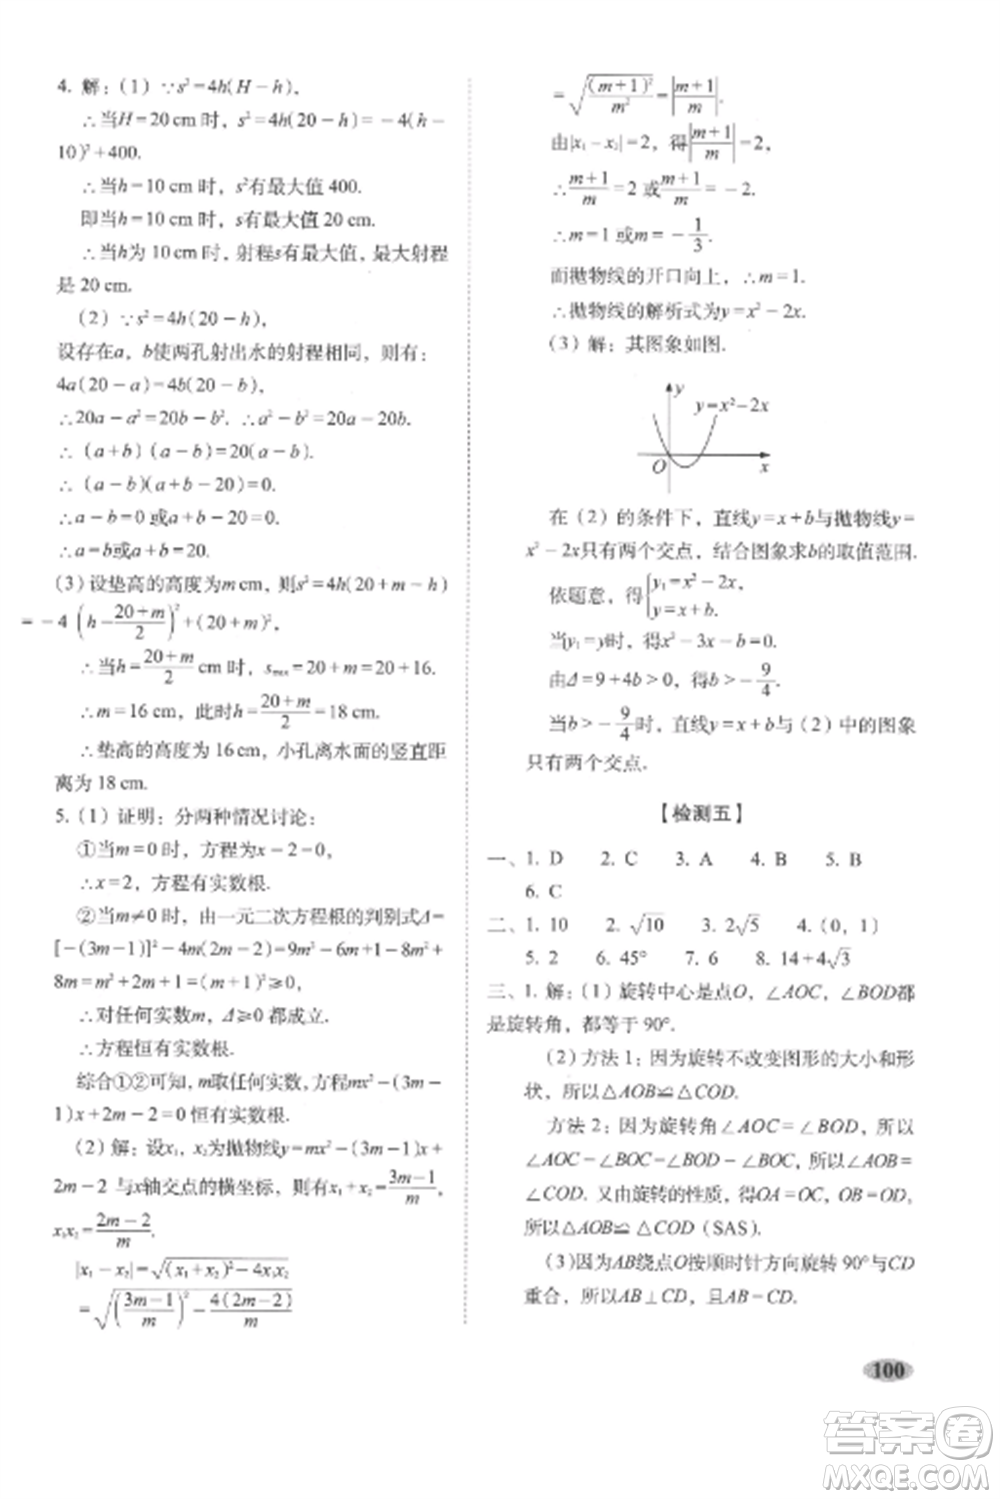 4. 解：(1) ∵s²=4h(H-h),
∴当H=20 cm 时, s²=4h(20-h)=-4(h-
10)²+400.
∴当h=10 cm 时, s²有最大值 400.
即当h=10 cm 时, s有最大值 20 cm.
∴当h为 10 cm 时, 射程s有最大值, 最大射程
是 20 cm.
(2) ∵s²=4h(20-h),
设存在a, b使两孔射出水的射程相同, 则有：
4a(20-a)=4b(20-b),
∴20a-a²=20b-b². ∴a²-b²=20a-20b.
∴ (a+b) (a-b)=20(a-b).
∴ (a-b)(a+b-20)=0.
∴a-b=0或a+b-20=0.
∴a=b或a+b=20.
(3) 设垫高的高度为m cm, 则s²=4h(20+m-h)
=-4(h-(20+m)/2)²+(20+m)²,
∴当h=(20+m)/2 cm 时, s_max=20+m=20+16.
∴m=16 cm, 此时h=(20+m)/2=18 cm.
∴垫高的高度为 16 cm, 小孔离水面的竖直距
离为 18 cm.
5. (1) 证明：分两种情况讨论：
①当m=0 时, 方程为x-2=0,
∴x=2, 方程有实数根.
②当m≠0 时, 由一元二次方程根的判别式Δ=
[-(3m-1)]²-4m(2m-2)=9m²-6m+1-8m²+
8m=m²+2m+1=(m+1)²≥0,
∴对任何实数m, Δ≥0 都成立.
∴方程恒有实数根.
综合①②可知, m取任何实数, 方程mx²-(3m-
1)x+2m-2=0 恒有实数根.
(2) 解：设x₁, x₂为抛物线y=mx²-(3m-1)x+
2m-2 与x轴交点的横坐标, 则有x₁+x₂=(3m-1)/m,
x₁x₂=(2m-2)/m.
|x₁-x₂|=√((x₁+x₂)²-4x₁x₂)
=√(((3m-1)/m)²-4(2m-2)/m)
=√((m+1)²/m²)=|(m+1)/m|.
由|x₁-x₂|=2, 得|(m+1)/m|=2,
∴(m+1)/m=2 或(m+1)/m=-2.
∴m=1 或m=-1/3.
而抛物线的开口向上, ∴m=1.
∴抛物线的解析式为y=x²-2x.
(3) 解：其图象如图.
y
y=x²-2x
O
x
在 (2) 的条件下, 直线y=x+b与抛物线y=
x²-2x只有两个交点, 结合图象求b的取值范围.
依题意, 得{y₁=x²-2x,
y=x+b.
当y₁=y时, 得x²-3x-b=0.
由Δ=9+4b>0, 得b>-9/4.
当b>-9/4时, 直线y=x+b与 (2) 中的图象
只有两个交点.
【检测五】
一、1. D 2. C 3. A 4. B 5. B
6. C
二、1. 10 2. √10 3. 2√5 4. (0, 1)
5. 2 6. 45° 7. 6 8. 14+4√3
三、1. 解：(1) 旋转中心是点O, ∠AOC, ∠BOD都
是旋转角, 都等于 90°.
(2) 方法 1：因为旋转不改变图形的大小和形
状, 所以△AOB≌△COD.
方法 2：因为旋转角∠AOC=∠BOD, 所以
∠AOC-∠BOC=∠BOD-∠BOC, 所以∠AOB=
∠COD. 又由旋转的性质, 得OA=OC, OB=OD,
所以△AOB≌△COD (SAS).
(3)因为AB绕点O按顺时针方向旋转 90°与CD
重合, 所以AB⊥CD, 且AB=CD.
100
答案圈
MXQE.COM